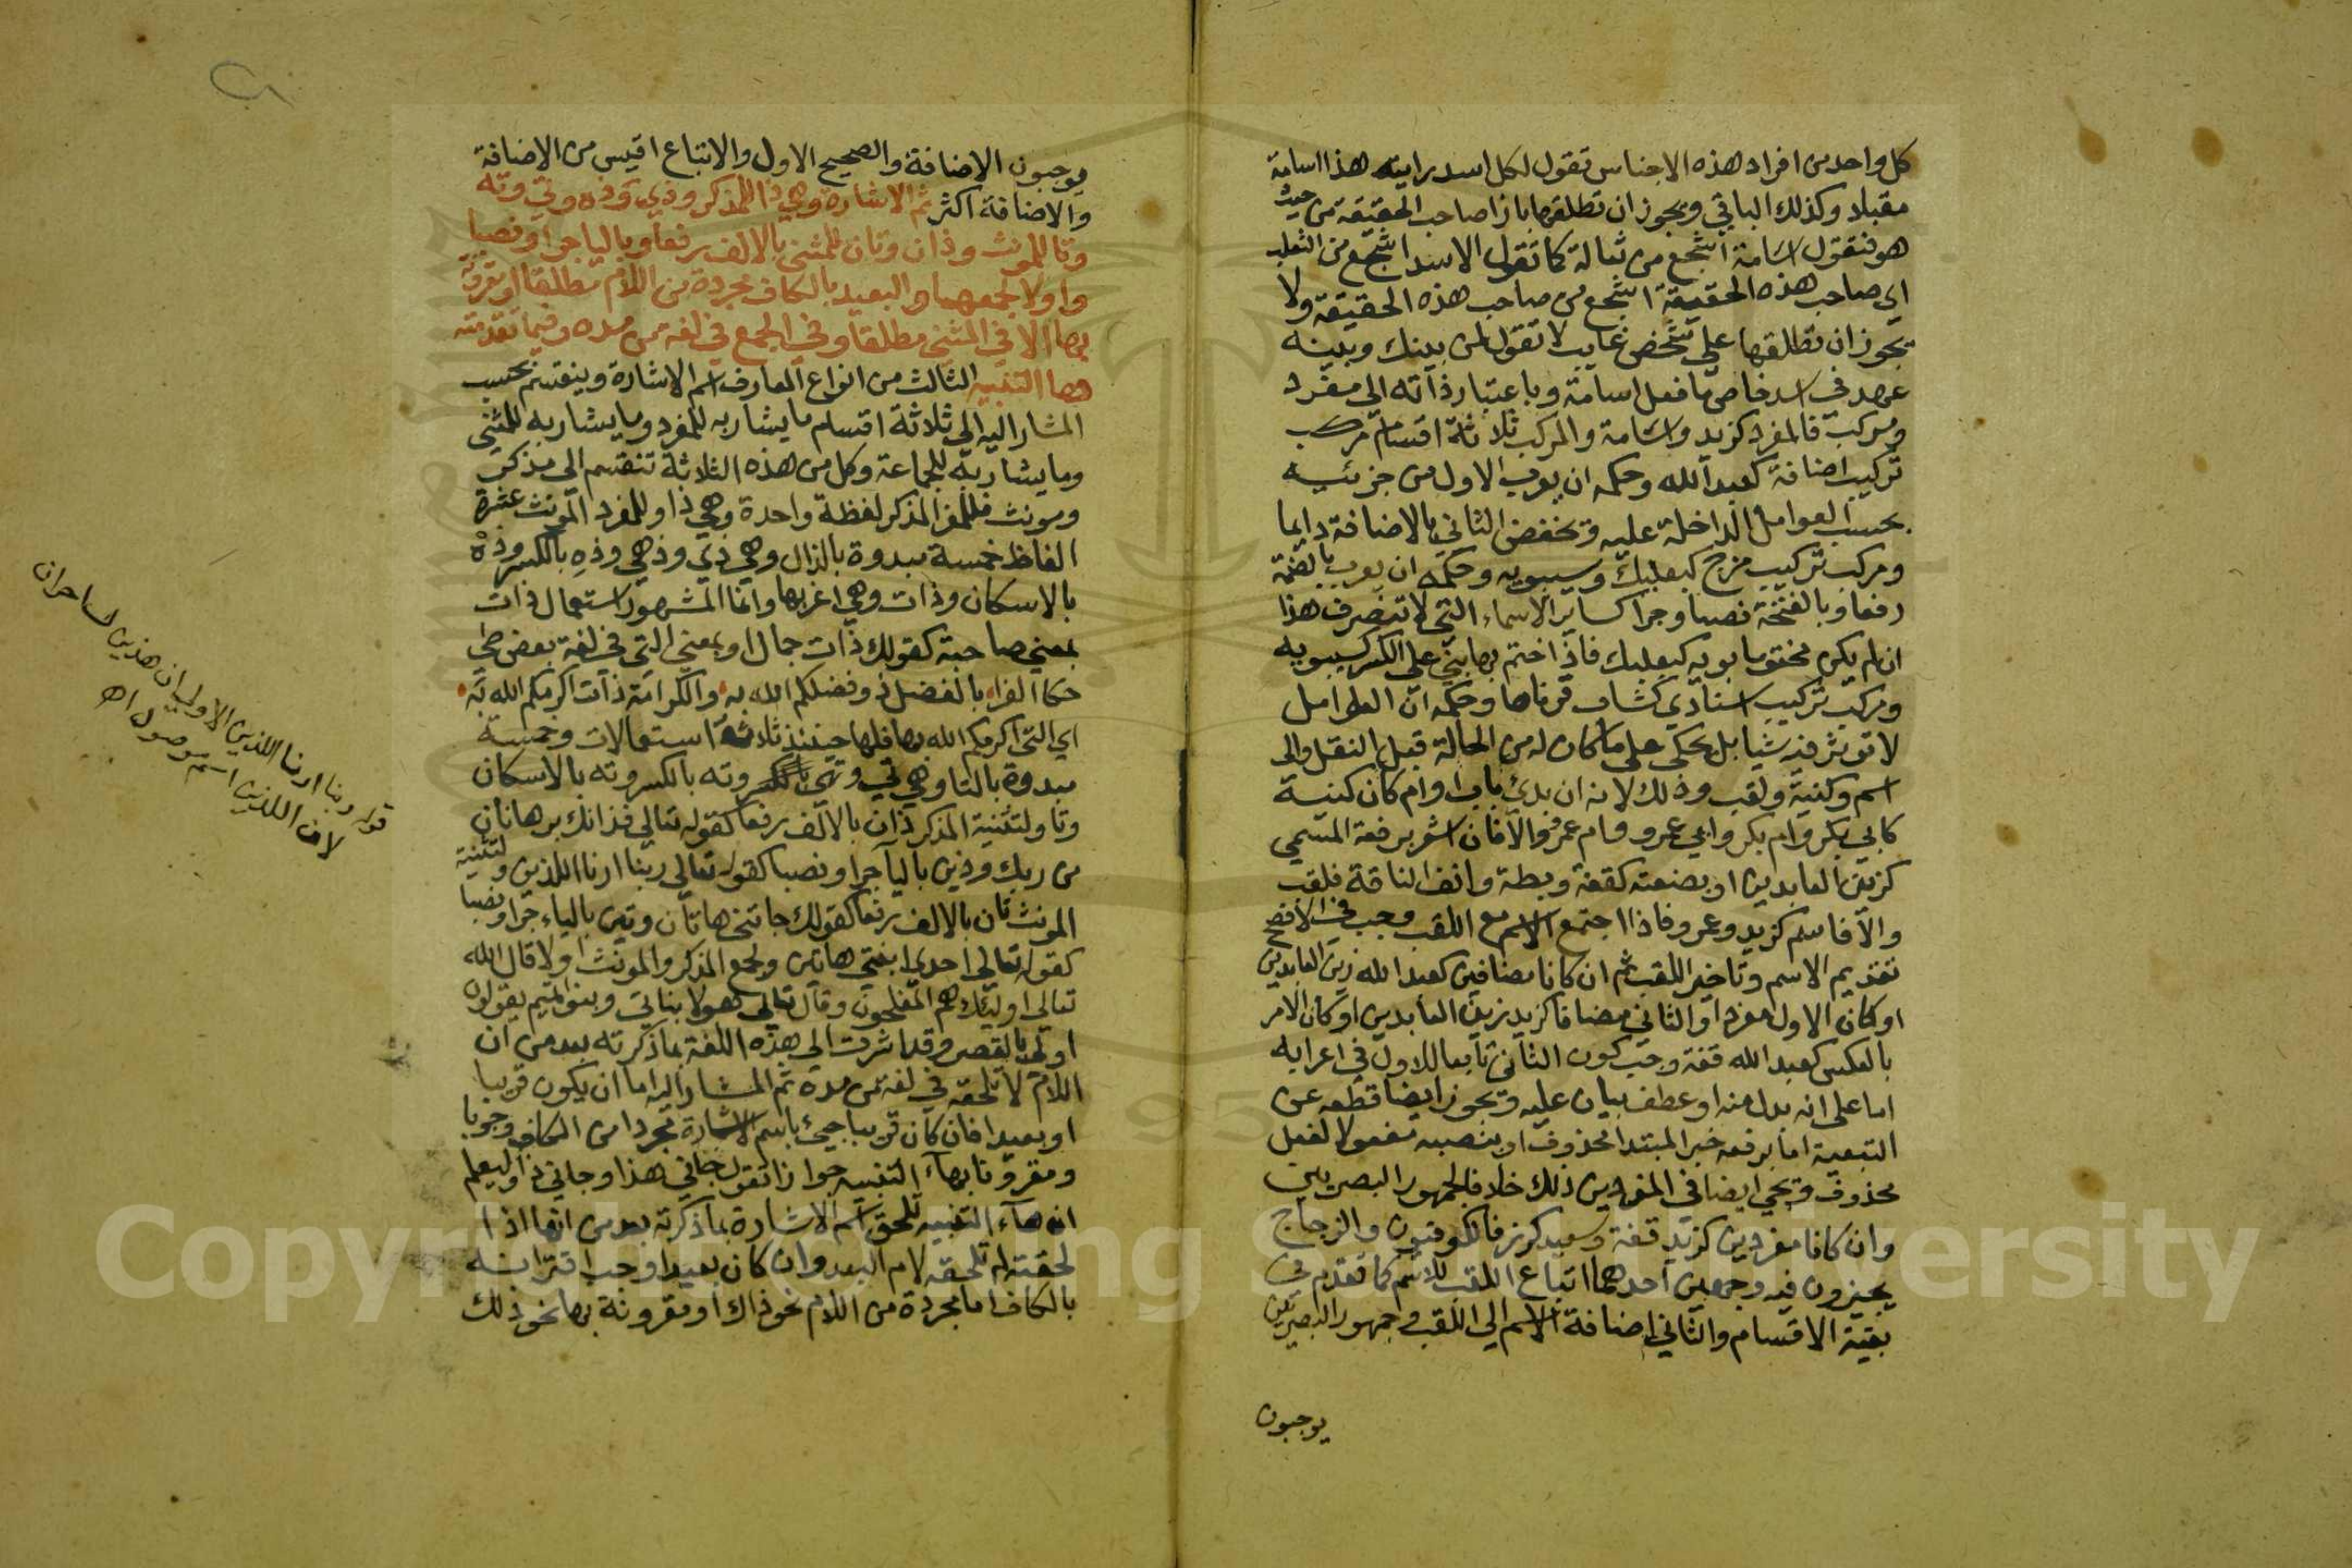 كل واحد من افراد هذه الاجناس تقول لكل اسد رايته هذا اسامة
مقبلا وكذلك الباقي ويجوز ان تطلقها بازا صاحب الحقيقة من حيث
هو فتقول اسامة اشجع من ثعالة كما تقول الاسد اشجع من الثعلب
اي صاحب هذه الحقيقة اشجع من صاحب هذه الحقيقة ولا
يجوز ان تطلقها على شخص غايب لا تقول لمن بينك وبينه
عهد في اسد خاص ما فعل اسامة وباعتبار ذاته الى مفرد
ومركب فالمفرد كزيد واسامة والمركب ثلاثة اقسام مركب
تركيب اضافة كعبد الله وحكمه ان يعرب الاول من جزئيه
بحسب العوامل الداخلة عليه ويخفض الثاني بالاضافة دايما
ومركب تركيب مزج كبعلبك وسيبويه وحكمه ان يعرب بالضمة
رفعا وبالفتحة نصبا وجرا كساير الاسماء التي لا تنصرف هذا
ان لم يكن مختوما بويه كبعلبك فاذا ختم بها بني على الكسر كسيبويه
ومركب تركيب اسنادي كشاب قرناها وحكمه ان العوامل
لا توثر فيه شيا بل يحكى على ما كان له من الحالة قبل النقل والى
اسم وكنية ولقب وذلك لانه ان بدئ باب او ام كان كنية
كابي بكر وام بكر وابي عمرو وام عمرو والا فان اشعر برفعة المسمي
كزين العابدين او بضعته كقفة وبطة وانف الناقة فلقب
والا فاسم كزيد وعمرو فاذا اجتمع الاسم مع اللقب وجب في الافصح
تقديم الاسم وتاخير اللقب ثم ان كانا مضافين كعبد الله زين العابدين
او كان الاول مفردا والثاني مضافا كزيد زين العابدين او كان الامر
بالعكس كعبد الله قفة وجب كون الثاني تابعا للاول في اعرابه
اما على انه بدل منه او عطف بيان عليه ويجوز ايضا قطعه عن
التبعية اما برفعه خبر المبتدا محذوف او بنصبه مفعولا لفعل
محذوف ويجي ايضا في المفردين ذلك خلافا لجمهور البصريين
وان كانا مفردين كزيد قفة وسعيد كرز فالكوفيون والزجاج
يجيزون فيه وجهين احدهما اتباع اللقب للاسم كما تقدم في
بقية الاقسام والثاني اضافة الاسم الى اللقب وجمهور البصريين
يوجبون
يوجبون الاضافة والصحيح الاول والاتباع اقيس من الاضافة
والاضافة اكثر ثم الاشارة وهي ذا للمذكر وذي وذه وتي وته
وتا للمونث وذان وتان للمثنى بالالف رفعا وباليا جرا ونصبا
واولا لجمعهما والبعيد بالكاف مجردة من اللام مطلقا او مقرونة
بها الا في المثنى مطلقا وفي الجمع في لغة من مده وفيما تقدمته
ها التنبيه الثالث من انواع المعارف اسم الاشارة وينقسم بحسب
المشار اليه الى ثلاثة اقسام ما يشار به للمفرد وما يشار به للمثنى
وما يشار به للجماعة وكل من هذه الثلاثة تنقسم الى مذكر
ومونث فللمفرد المذكر لفظة واحدة وهي ذا وللمفرد المونث عشرة
الفاظ خمسة مبدوة بالذال وهي ذي وذهي وذه بالكسر وذه
بالاسكان وذات وهي اغربها وانما المشهور استعمال ذات
بمعنى صاحبة كقولك ذات جمال او بمعنى التي في لغة بعض طي
حكا الفراء بالفضل ذو فضلكم الله به والكرامة ذات اكرمكم الله به
اي التي اكرمكم الله بها فلها حينئذ ثلاثة استعمالات وخمسة
مبدوة بالتا وهي تي وتهي وته بالكسر وته بالاسكان
وتا ولتثنية المذكر ذان بالالف رفعا كقوله تعالي فذانك برهانان
من ربك وذين باليا جرا ونصبا كقوله تعالي ربنا ارنا اللذين ولتثنية
المونث تان بالالف رفعا كقولك جاتني هاتان وتين بالياء جرا ونصبا
كقوله تعالي احدى ابنتي هاتين ولجمع المذكر والمونث اولا قال الله
تعالى اوليك هم المفلحون وقال تعالى هولا بناتي وبنو تميم يقولون
اولى بالقصر وقد اشرت الى هذه اللغة بما ذكرته بعد من ان
اللام لا تلحقه في لغة من مده ثم المشار اليه اما ان يكون قريبا
او بعيدا فان كان قريبا جيئ باسم الاشارة مجردا من الكاف وجوبا
ومقرونا بهاء التنبيه جوازا تقول جاني هذا وجاني ذا وليعلم
ان هاء التنبيه تلحق اسم الاشارة بما ذكرته بعد من انها اذا
لحقته لم تلحقه لام البعد وان كان بعيدا وجب اقترانه
بالكاف اما مجردة من اللام نحو ذاك او مقرونة بها نحو ذلك
قوله ربنا ارنا اللذين الاولى ان هذين لساحران
لان اللذين اسم موصول اه
Copyright © King Saud University